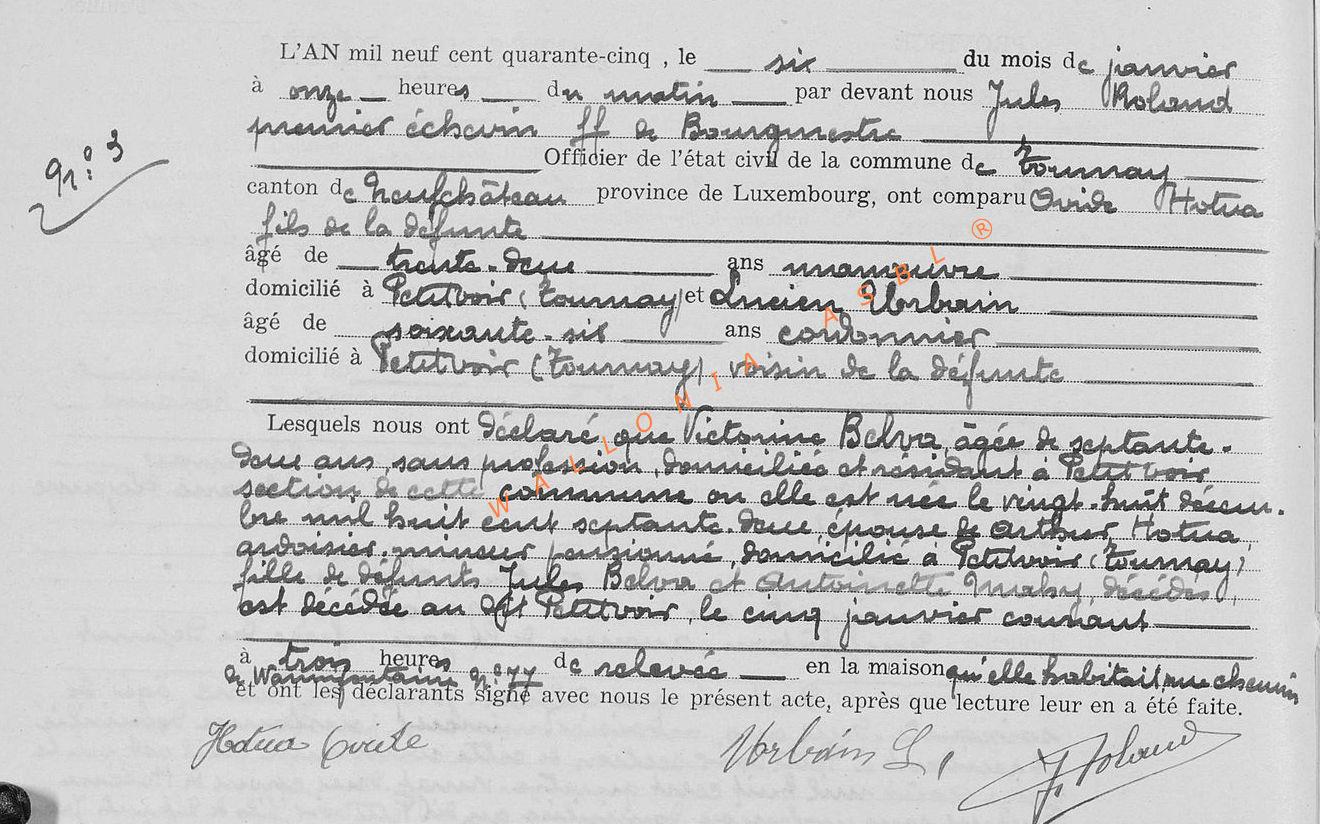 L'AN mil neuf cent quarante-cinq , le six du mois de janvier
à onze heures du matin par devant nous Jules Roland
premier échevin ff de Bourgmestre
N.° 3
Officier de l'état civil de la commune de Tournay
canton de Neufchâteau province de Luxembourg, ont comparu Ovide Hotua
fils de la défunte
âgé de trente-deux ans manœuvre
domicilié à Petitvoir (Tournay) et Lucien Urbain
âgé de soixante-six ans cordonnier
domicilié à Petitvoir (Tournay), voisin de la défunte
WALLONIA ASBL ®
Lesquels nous ont déclaré que Victorine Belva, âgée de septante-
deux ans, sans profession, domiciliée et résidant à Petitvoir
section de cette commune où elle est née le vingt-huit décem-
bre mil huit cent septante-deux, épouse de Arthur Hotua,
ardoisier-mineur pensionné, domicilié à Petitvoir (Tournay)
fille de défunts Jules Belva et Antoinette Mahy, décédés,
est décédée au dit Petitvoir, le cinq janvier courant
à trois heures de relevée en la maison qu'elle habitait, rue chemin
de Warmifontaine N.° 77
et ont les déclarants signé avec nous le présent acte, après que lecture leur en a été faite.
Hotua Ovide Urbain L, J. Roland